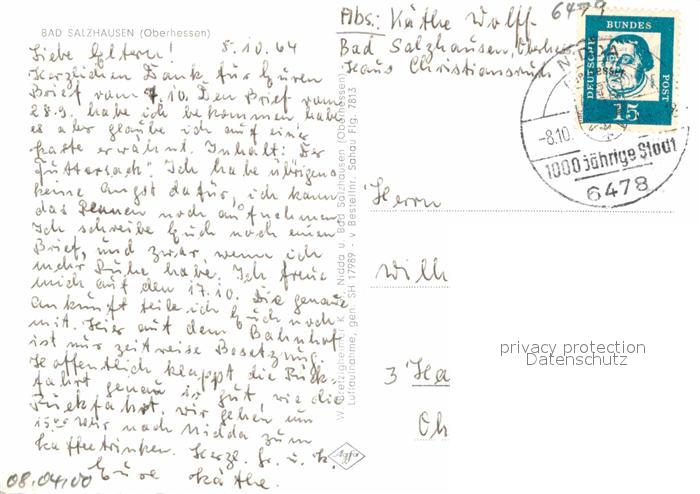 BAD SALZHAUSEN (Oberhessen)
8.10.64
Liebe Eltern!
Herzlichen Dank für Euren
Brief vom 7.10. Den Brief vom
28.9. habe ich bekommen, habe
es aber glaube ich auf einer
Karte erwähnt. Inhalt: Der
"Futtersack". Ich habe übrigens
keine Angst dafür, ich kann
das Rennen noch aufnehmen.
Ich schreibe Euch noch einen
Brief, und zwar, wenn ich
mehr Ruhe habe. Ich freue
mich auf den 17.10. Die genaue
Ankunft teile ich Euch noch
mit. Hier auf dem Bahnhof
ist nur zeitweise Besetzung.
Hoffentlich klappt die Rück-
fahrt genau so gut, wie die
Rückfahrt. Wir gehen um
15 Uhr nach Nidda zum
Kaffeetrinken. Herzl. Gr. u. K.
Eure Käthe.
08.04.00
W. Gretzigheimer K.G. Nidda u. Bad Salzhausen (Oberhessen)
Luftaufnahme, gen. SH 17989 - v Bestellnr. Sahau Flg. 7813
Abs: Käthe Wolff 6479
Bad Salzhausen, Oberhess
Haus Christiansruh
DEUTSCHE BUNDES POST
15
NIDDA
-8.10.
1000 jährige Stadt
6478
Herrn
Wilh
3 Ha
Oh
privacy protection
Datenschutz